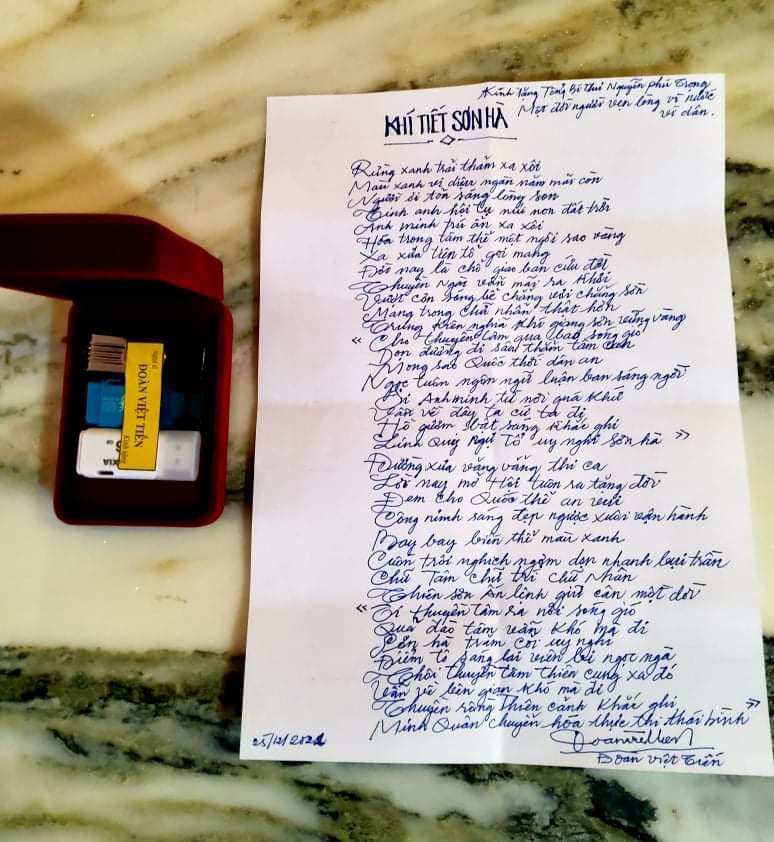 Kính tặng Tổng Bí thư Nguyễn phú Trọng
Một đời người vẹn lòng vì nước
vì dân.
KHÍ TIẾT SƠN HÀ
Rừng xanh trải thăm xa xôi
Màu xanh vi diệu ngàn năm mãi còn
Người đi tỏa sáng lòng son
Tinh anh hội tụ núi non đất trời
Anh minh trí ân xa xôi
Hóa trong tâm thể một ngôi sao vàng
Xa xưa tiên tổ gợi mang
Đời nay là chỗ giao ban cứu đời
Thuyền Ngài vẫn mãi ra khơi
Vượt cồn sóng bể chẳng vơi chẳng sờn
Mang trong chữ nhẫn thật hơn
Trung kiên nghĩa khí giang sơn vững vàng
" Chở thuyền tâm qua bao sóng gió
Dọn đường đi sâu thẳm tâm can
Mong sao Quốc thới dân an
Ngọc tuôn ngôn ngữ luận ban sáng ngời
Bởi Anh minh từ nơi quá khứ
Vẫn về đây ta cứ ta đi
Hồ gươm bật sáng khắc ghi
Linh Quy Ngự Tổ uy nghi sơn hà "
Đường xưa văng vẳng thi ca
Lời nay mở hội tuôn ra tặng đời
Đem cho Quốc thể an vui
Công minh sáng đẹp ngược xuôi vận hành
Bay bay biển thể màu xanh
Cuộn trôi nghịch ngợm dẹp nhanh bụi trần
Chữ Tâm chữ trí chữ Nhân
Thiên sơn Ấn linh giữ cân một đời
" Bởi thuyền tâm ra nơi sóng gió
Qua đảo tâm vẫn khó mà đi
Sơn hà trăm cõi uy nghi
Điểm tô sáng lại viên bi ngọc ngà
Thôi thuyền tâm thiên cung xa đó
Vẫn về bên gian khó mà đi
Thuyền rồng thiên cảnh khắc ghi
Minh Quân chuyển hóa thực thi thái bình "
25/12/2021
Đoàn Việt Tiến
Nghệ sĩ
ĐOÀN VIỆT TIẾN
Kính tặng